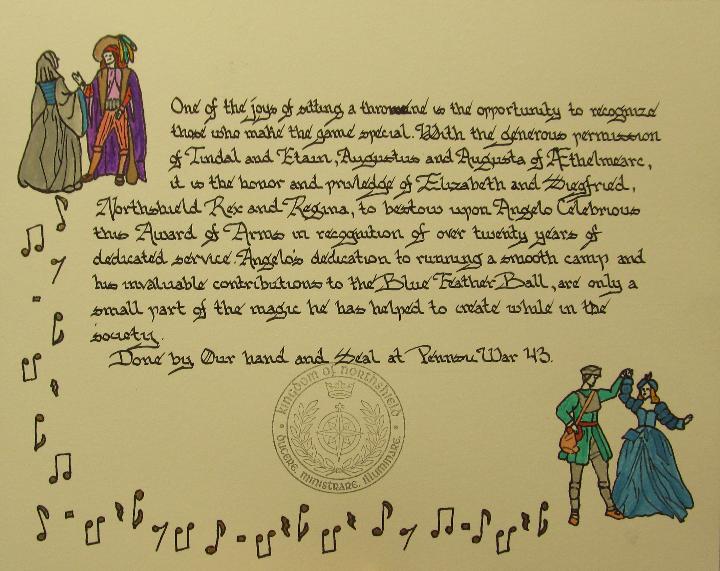 One of the joys of sitting a throwene is the opportunity to recognize
those who make the game special. With the generous permission
of Tindal and Etain, Augustus and Augusta of Æthelmearc,
it is the honor and priviledge of Elizabeth and Siegfried,
Northshield Rex and Regina, to bestow upon Angelo Celebrious
this Award of Arms in recognition of over twenty years of
dedicated service. Angelo's dedication to running a smooth camp and
his invaluable contributions to the Blue Feather Ball, are only a
small part of the magic he has helped to create while in the
society.
Done by Our hand and Seal at Pennsic War 43.
Kingdom of Northshield
Ducere, Ministrare, Illuminare